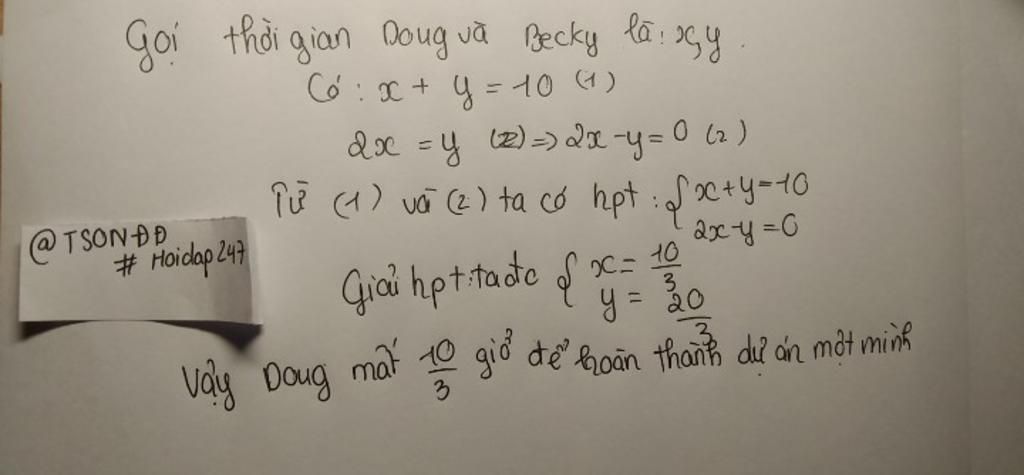 Gọi thời gian Doug và Becky là: x, y.
Có: x + y = 10 (1)
2x = y (2) => 2x - y = 0 (2)
Từ (1) và (2) ta có hpt: { x + y = 10
2x - y = 0
@TSONĐĐ
# Hoidap247
Giải hpt: ta đc { x = 10/3
y = 20/3
Vậy Doug mất 10/3 giờ để hoàn thành dự án một mình